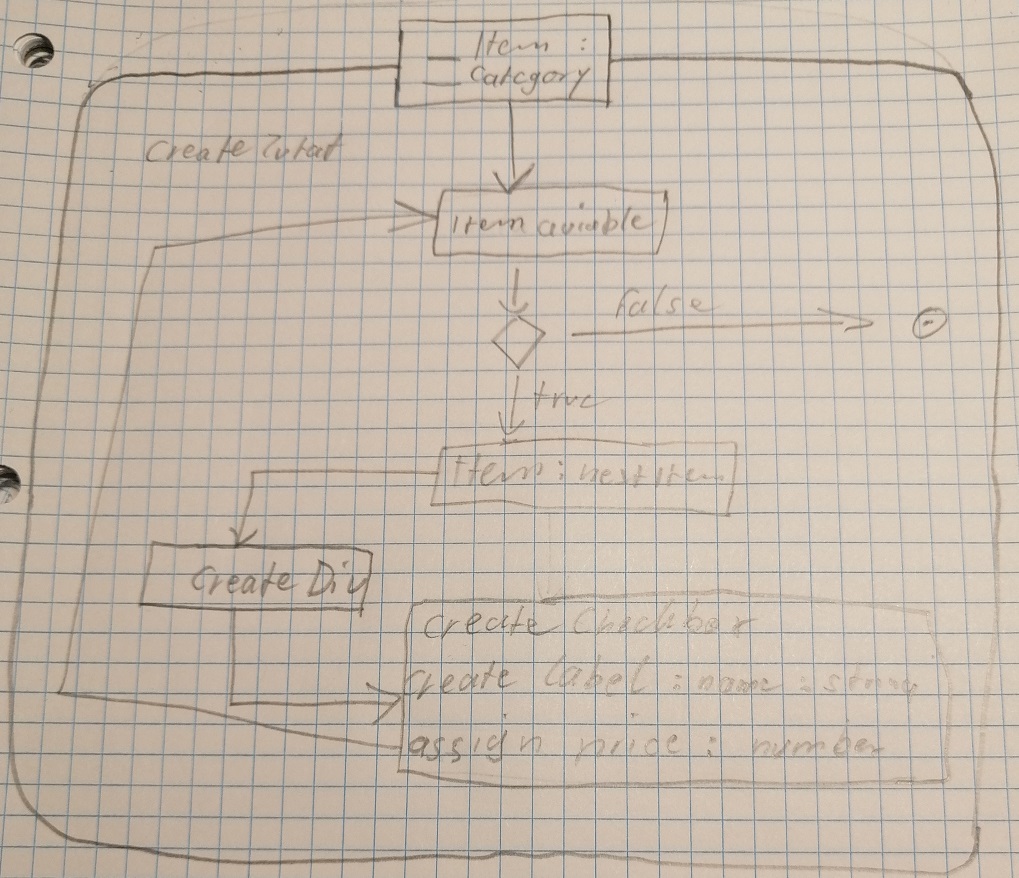 Item :
Category
Create Zutat
Item aviable
false
true
Item : nextItem
Create Div
create Checkbox
create label : name : string
assign price : number